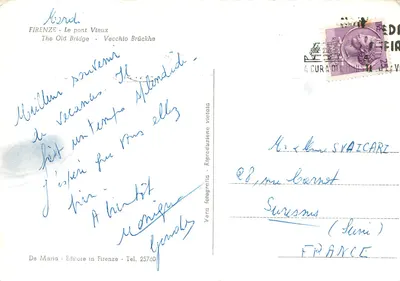 Mardi
FIRENZE - Le pont Vieux
The Old Bridge - Vecchio Brücke
Meilleur souvenir
de vacances. Il
fait un temps splendide.
J'espère que vous allez
bien.
A bientôt
Monique
Vera fotografia - Riproduzione vietata
De Maria - Editore in Firenze - Tel. 25760
M. & Mme SVAICARI
28, rue Carnot
Suresnes
(Seine)
FRANCE